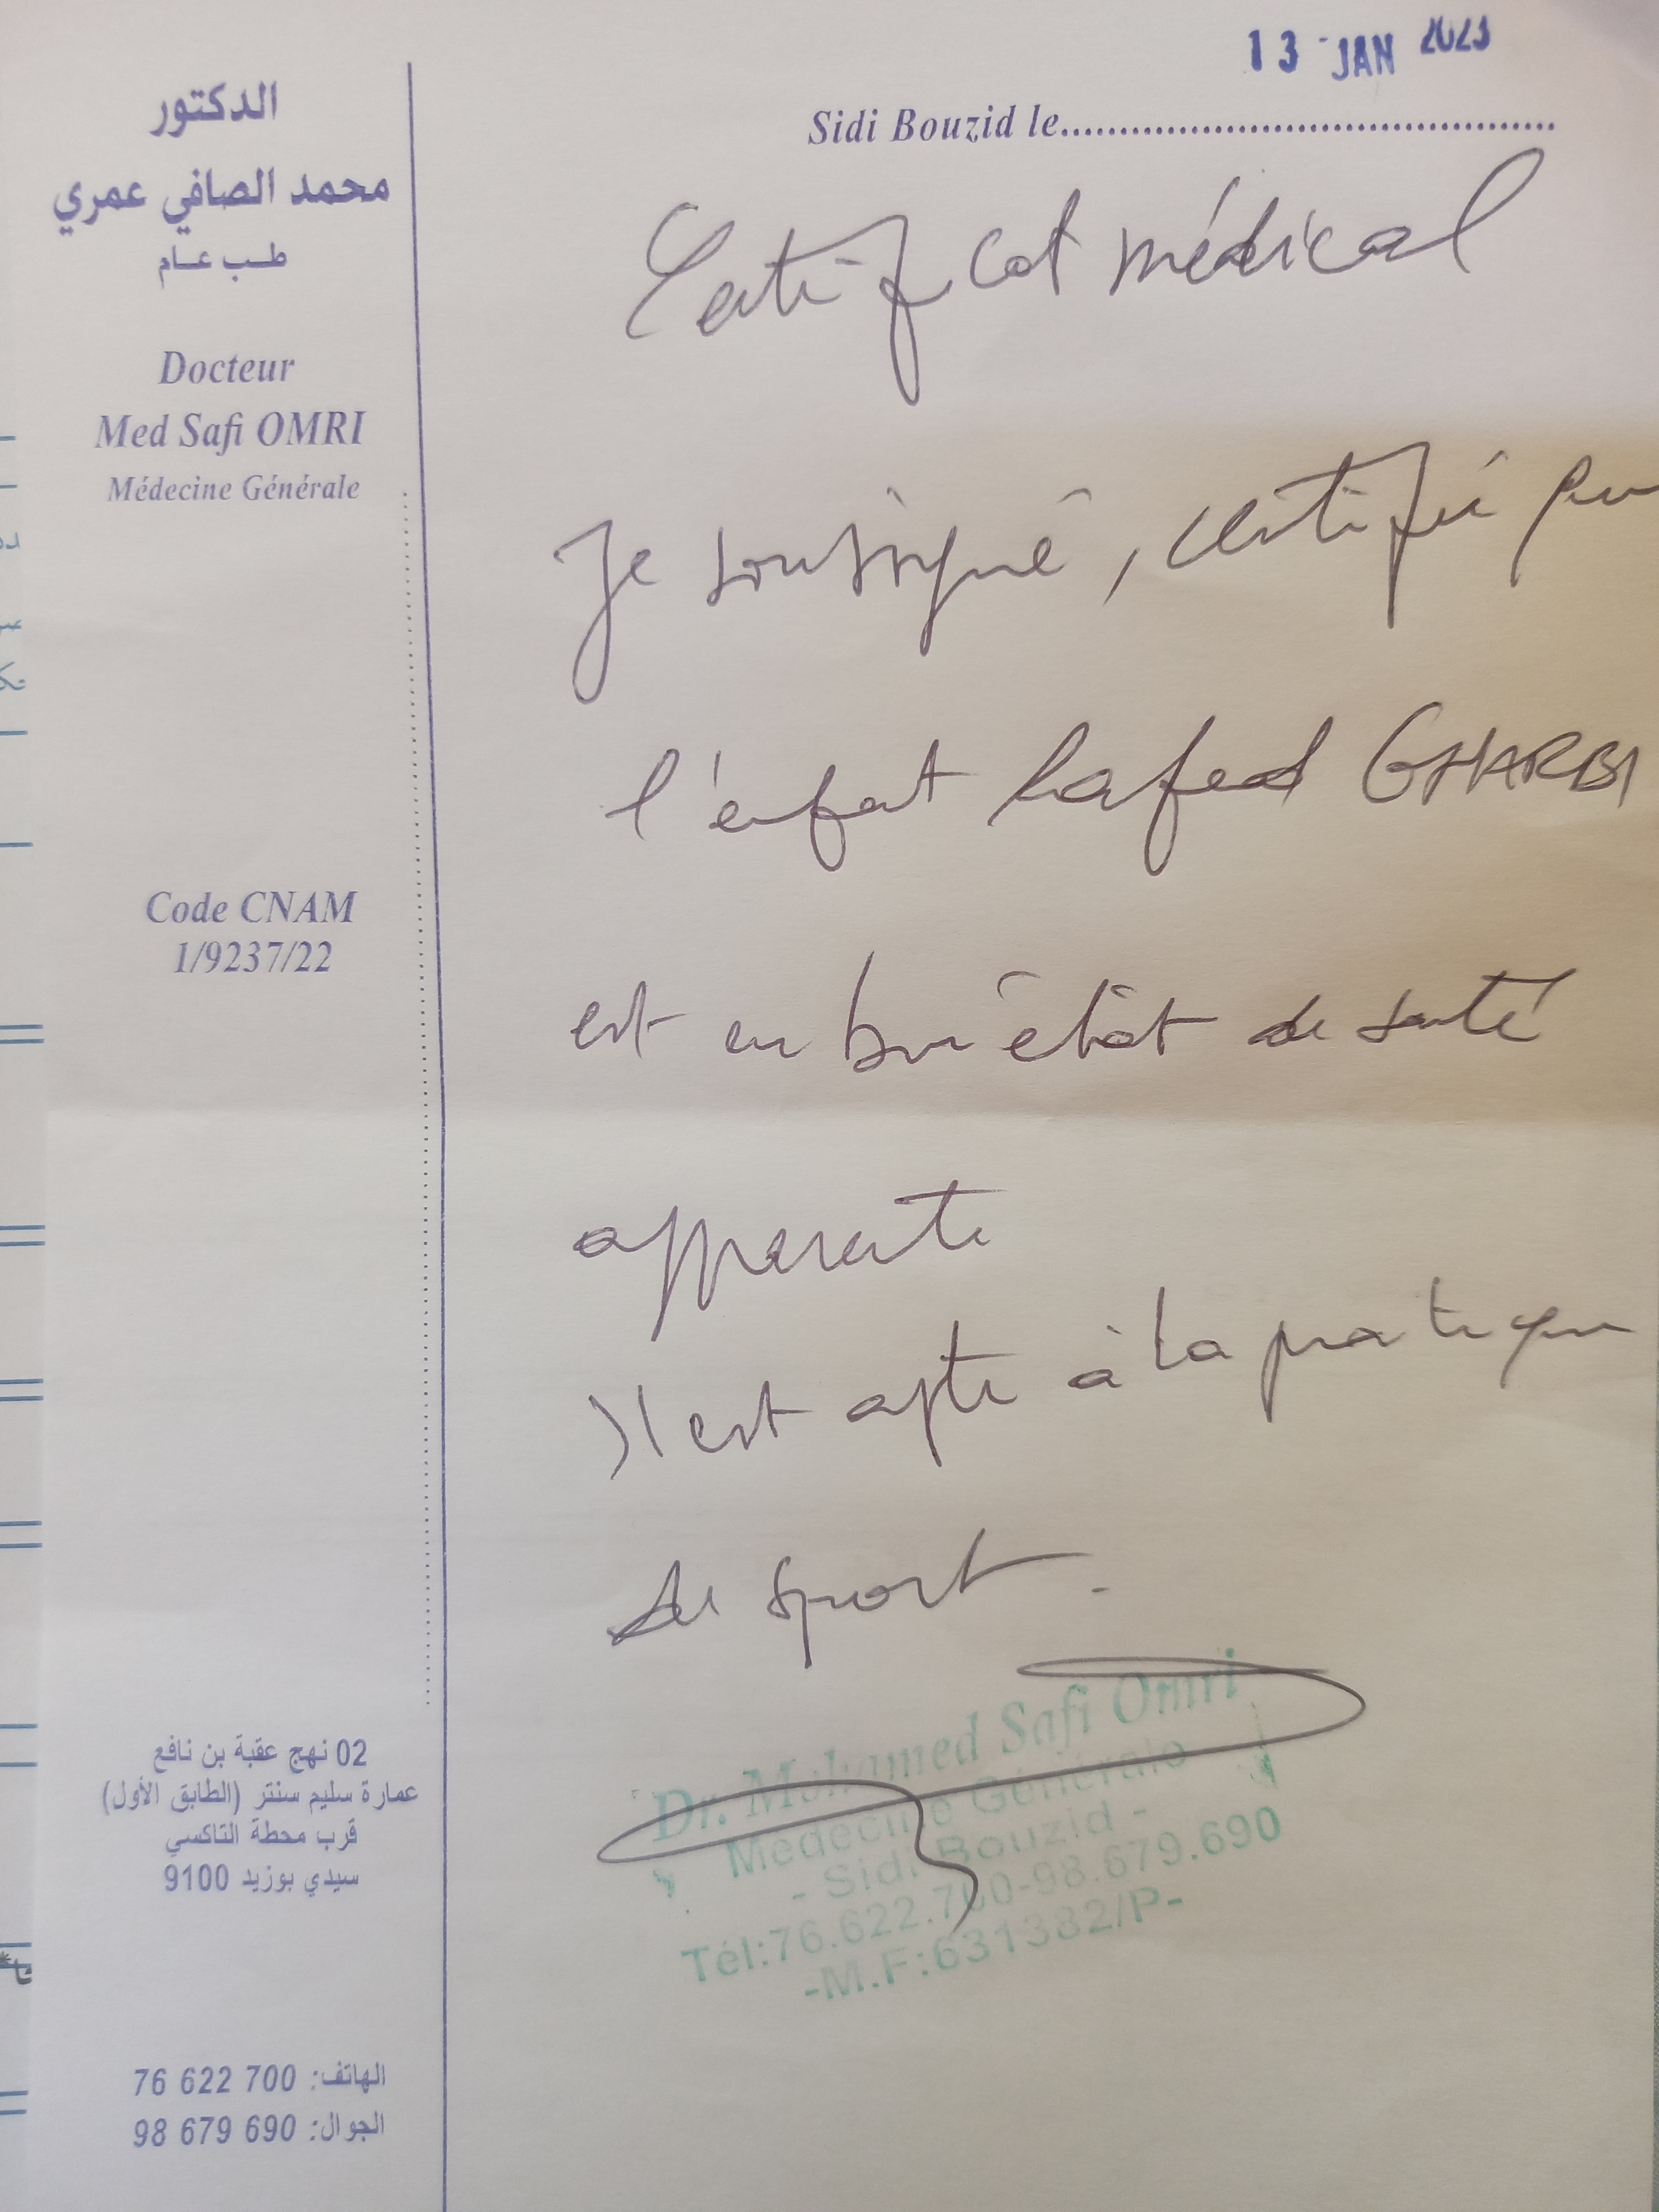 الدكتور
محمد الصافي عمري
طب عام
Docteur
Med Safi OMRI
Médecine Générale
Code CNAM
1/9237/22
02 نهج عقبة بن نافع
عمارة سليم سنتر (الطابق الأول)
قرب محطة التاكسي
سيدي بوزيد 9100
الهاتف: 76 622 700
الجوال: 98 679 690
13 JAN 2023
Sidi Bouzid le
Certificat médical
Je soussigné, certifié que
l'enfant Rafed GHARBI
est en bon état de santé
apparente
Il est apte à la pratique
de sport.
Dr. Mohamed Safi Omri
Médecine Générale
- Sidi Bouzid -
Tél:76.622.700-98.679.690
-M.F:631382/P-